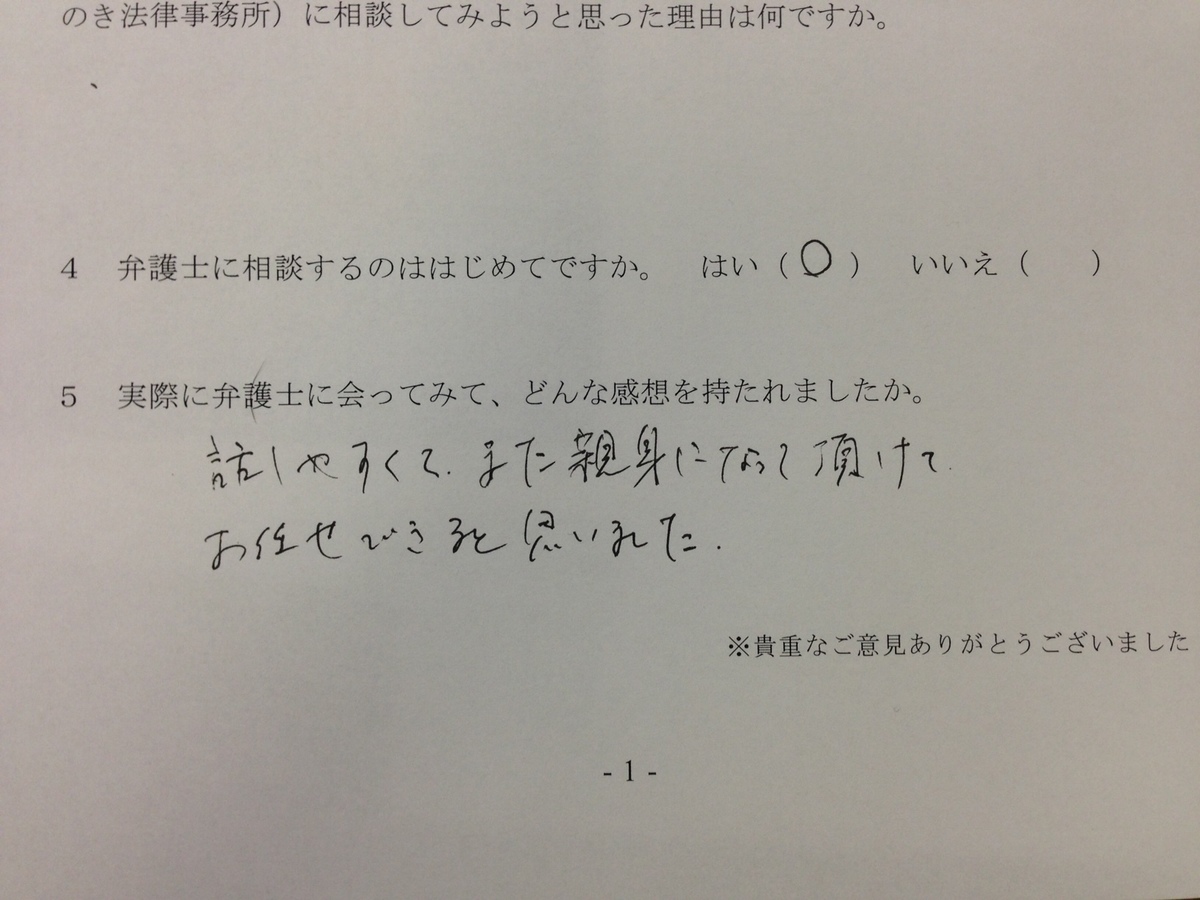 のき法律事務所）に相談してみようと思った理由は何ですか。
、
４　弁護士に相談するのははじめてですか。　はい（○）　いいえ（　　）
５　実際に弁護士に会ってみて、どんな感想を持たれましたか。
話しやすくて、また親身になって頂けて
お任せできると思いました.
※貴重なご意見ありがとうございました
- 1 -